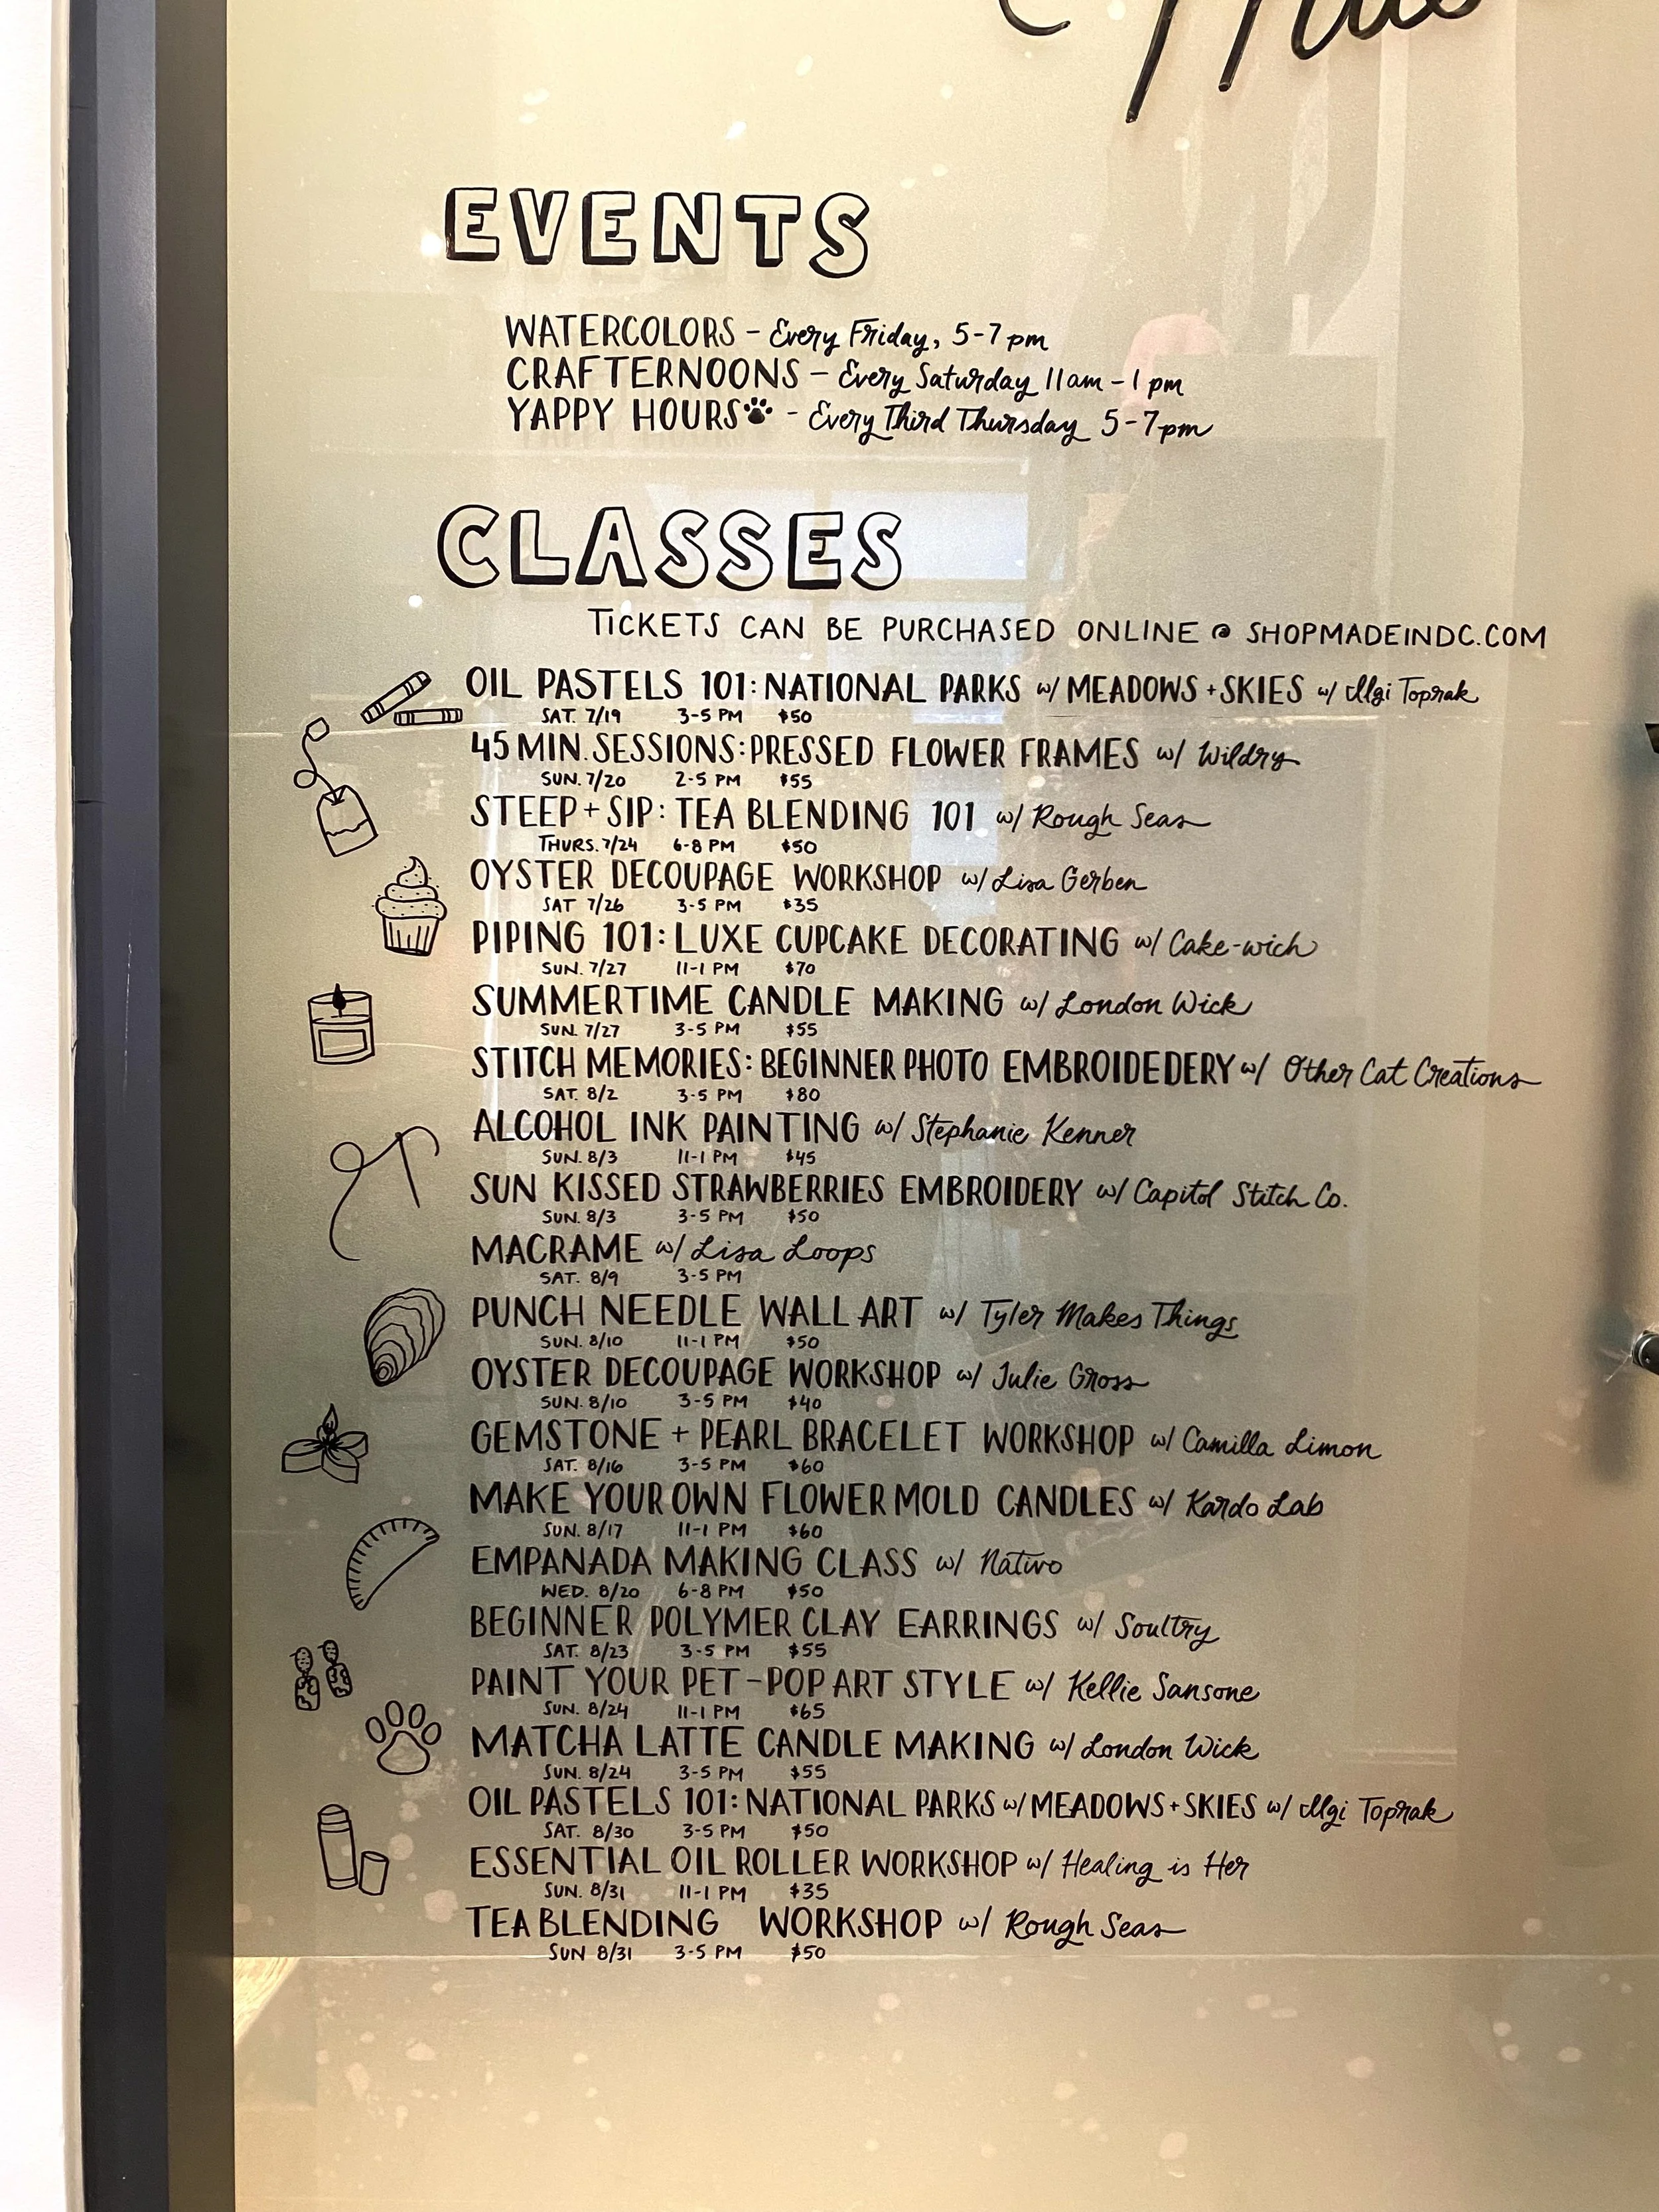 EVENTS
WATERCOLORS - Every Friday, 5-7pm
CRAFTERNOONS - Every Saturday 11am-1pm
YAPPY HOURS - Every Third Thursday 5-7pm
CLASSES
TICKETS CAN BE PURCHASED ONLINE @ SHOPMADEINDC.COM
OIL PASTELS 101: NATIONAL PARKS w/ MEADOWS + SKIES w/ Ilgi Toprak
SAT. 7/19 3-5 PM $50
45 MIN. SESSIONS: PRESSED FLOWER FRAMES w/ Wildry
SUN. 7/20 2-5 PM $55
STEEP + SIP: TEA BLENDING 101 w/ Rough Seas
THURS. 7/24 6-8 PM $50
OYSTER DECOUPAGE WORKSHOP w/ Lisa Gerben
SAT 7/26 3-5 PM $35
PIPING 101: LUXE CUPCAKE DECORATING w/ Cake-wich
SUN. 7/27 11-1 PM $70
SUMMERTIME CANDLE MAKING w/ London Wick
SUN. 7/27 3-5 PM $55
STITCH MEMORIES: BEGINNER PHOTO EMBROIDEDERY w/ Other Cat Creations
SAT. 8/2 3-5 PM $80
ALCOHOL INK PAINTING w/ Stephanie Kenner
SUN. 8/3 11-1 PM $45
SUN KISSED STRAWBERRIES EMBROIDERY w/ Capitol Stitch Co.
SUN. 8/3 3-5 PM $50
MACRAME w/ Lisa Loops
SAT. 8/9 3-5 PM
PUNCH NEEDLE WALL ART w/ Tyler Makes Things
SUN. 8/10 11-1 PM $50
OYSTER DECOUPAGE WORKSHOP w/ Julie Gross
SUN. 8/10 3-5 PM $40
GEMSTONE + PEARL BRACELET WORKSHOP w/ Camilla Limon
SAT. 8/16 3-5 PM $60
MAKE YOUR OWN FLOWER MOLD CANDLES w/ Kardo Lab
SUN. 8/17 11-1 PM $60
EMPANADA MAKING CLASS w/ Nativo
WED. 8/20 6-8 PM $50
BEGINNER POLYMER CLAY EARRINGS w/ Soultry
SAT. 8/23 3-5 PM $55
PAINT YOUR PET - POP ART STYLE w/ Kellie Sansone
SUN. 8/24 11-1 PM $65
MATCHA LATTE CANDLE MAKING w/ London Wick
SUN. 8/24 3-5 PM $55
OIL PASTELS 101: NATIONAL PARKS w/ MEADOWS + SKIES w/ Ilgi Toprak
SAT. 8/30 3-5 PM $50
ESSENTIAL OIL ROLLER WORKSHOP w/ Healing is Her
SUN. 8/31 11-1 PM $35
TEA BLENDING WORKSHOP w/ Rough Seas
SUN 8/31 3-5 PM $50